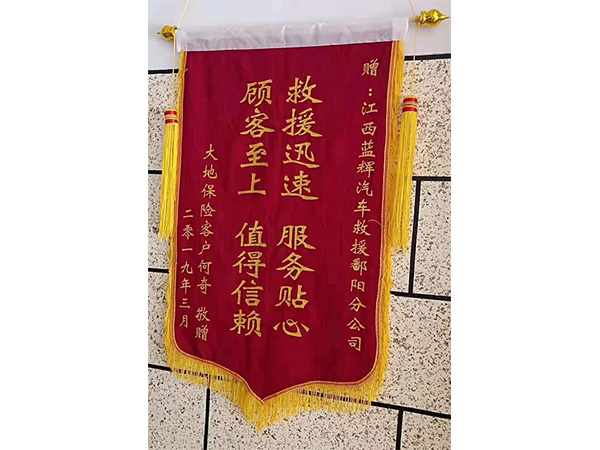 赠：江西蓝辉汽车救援鄱阳分公司
救援迅速 服务贴心
顾客至上 值得信赖
大地保险客户何奇 敬赠
二零一九年三月